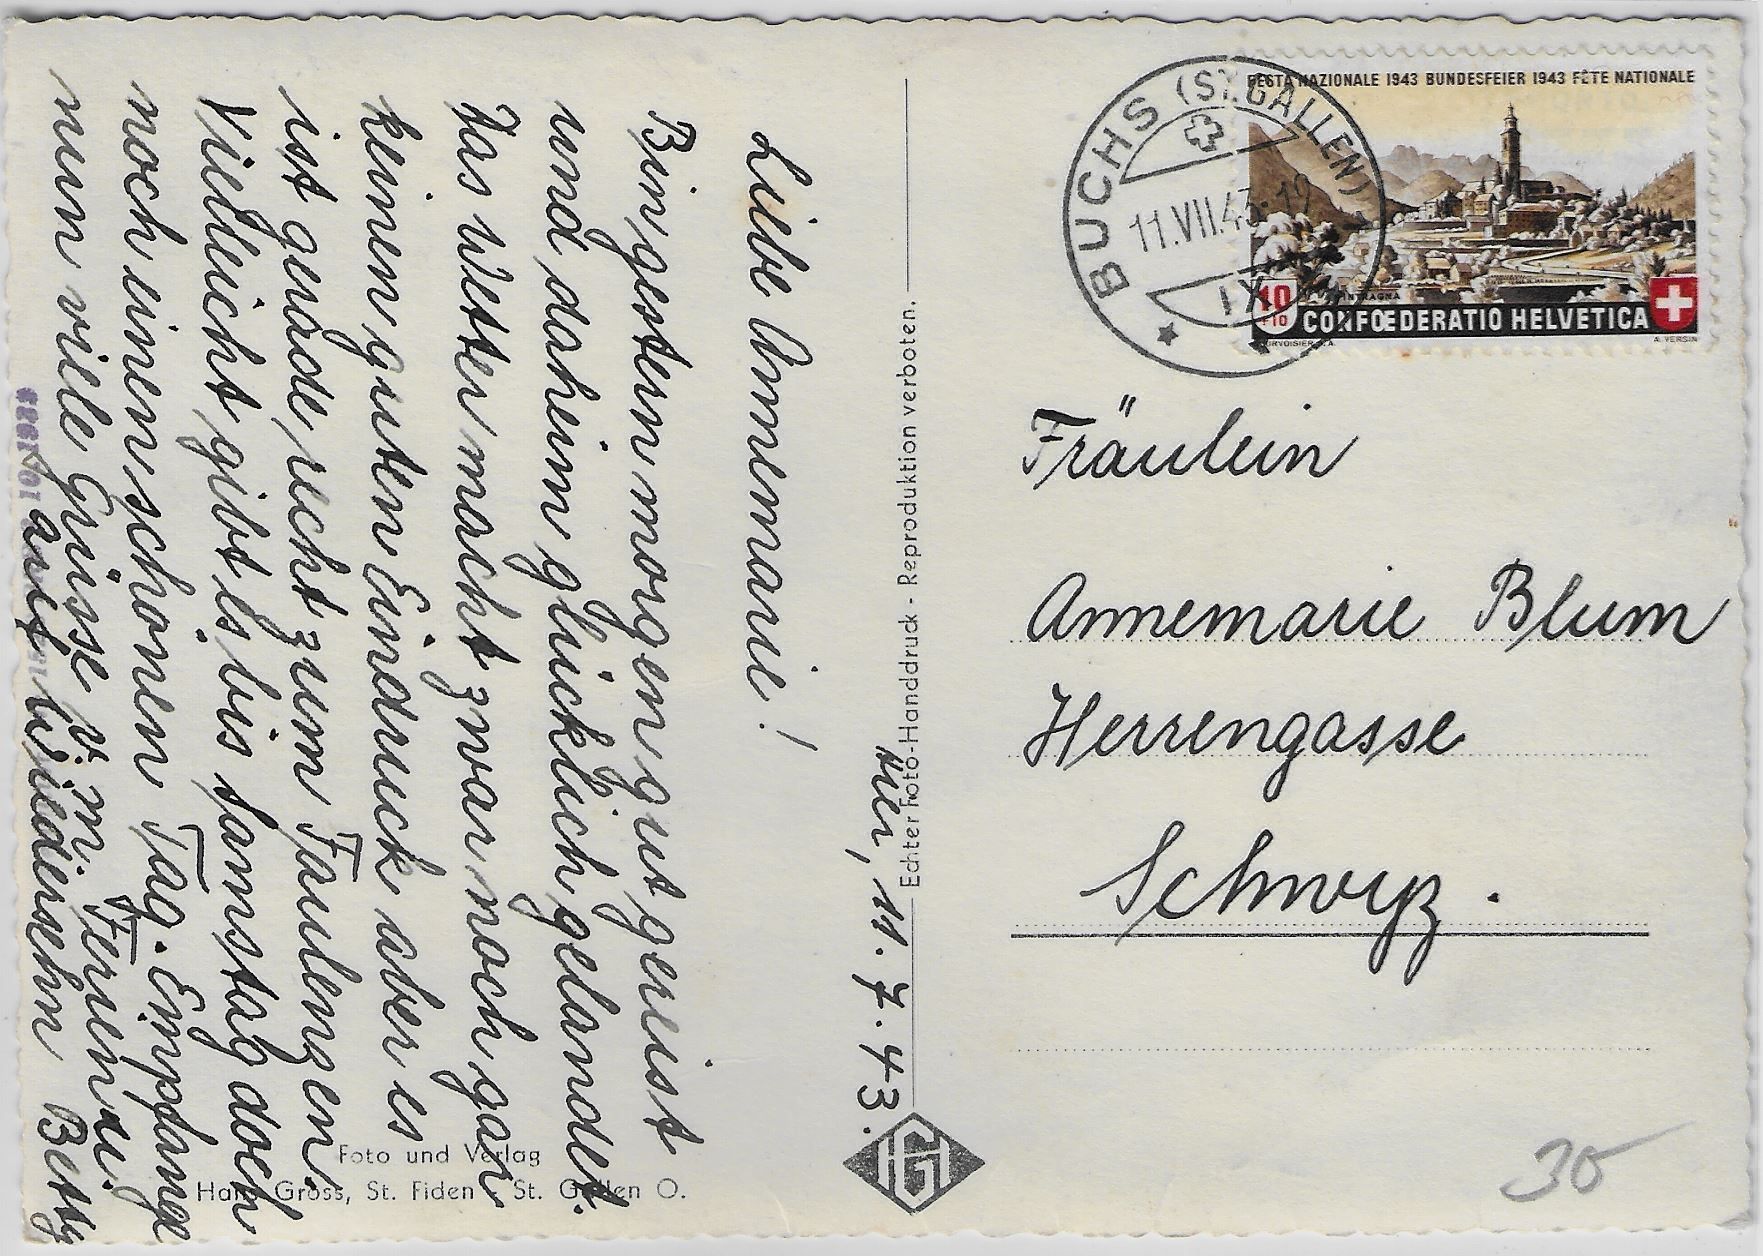 Hier, 11.7.43.
Liebe Annemarie!
Bin gestern morgen gut gereist
und daheim glücklich gelandet.
Das Wetter macht zwar noch gar
keinen guten Eindruck aber es
ist gerade recht zum Faulenzen.
Vielleicht gibt es bis Samstag doch
noch einen schönen Tag. Empfange
nun viele Grüsse v. m. Ferien u.
auf Wiedersehn Betty
Foto und Verlag
Hans Gross, St. Fiden - St. Gallen O.
Echter Foto-Handdruck - Reproduktion verboten.
HG
BUCHS (ST. GALLEN)
11.VII.43-19
IX
FESTA NAZIONALE 1943 BUNDESFEIER 1943 FÊTE NATIONALE
INTRAGNA
10
+10
CONFŒDERATIO HELVETICA
COURVOISIER S.A.
A. YERSIN
Fräulein
Annemarie Blum
Herrengasse
Schwyz.
30